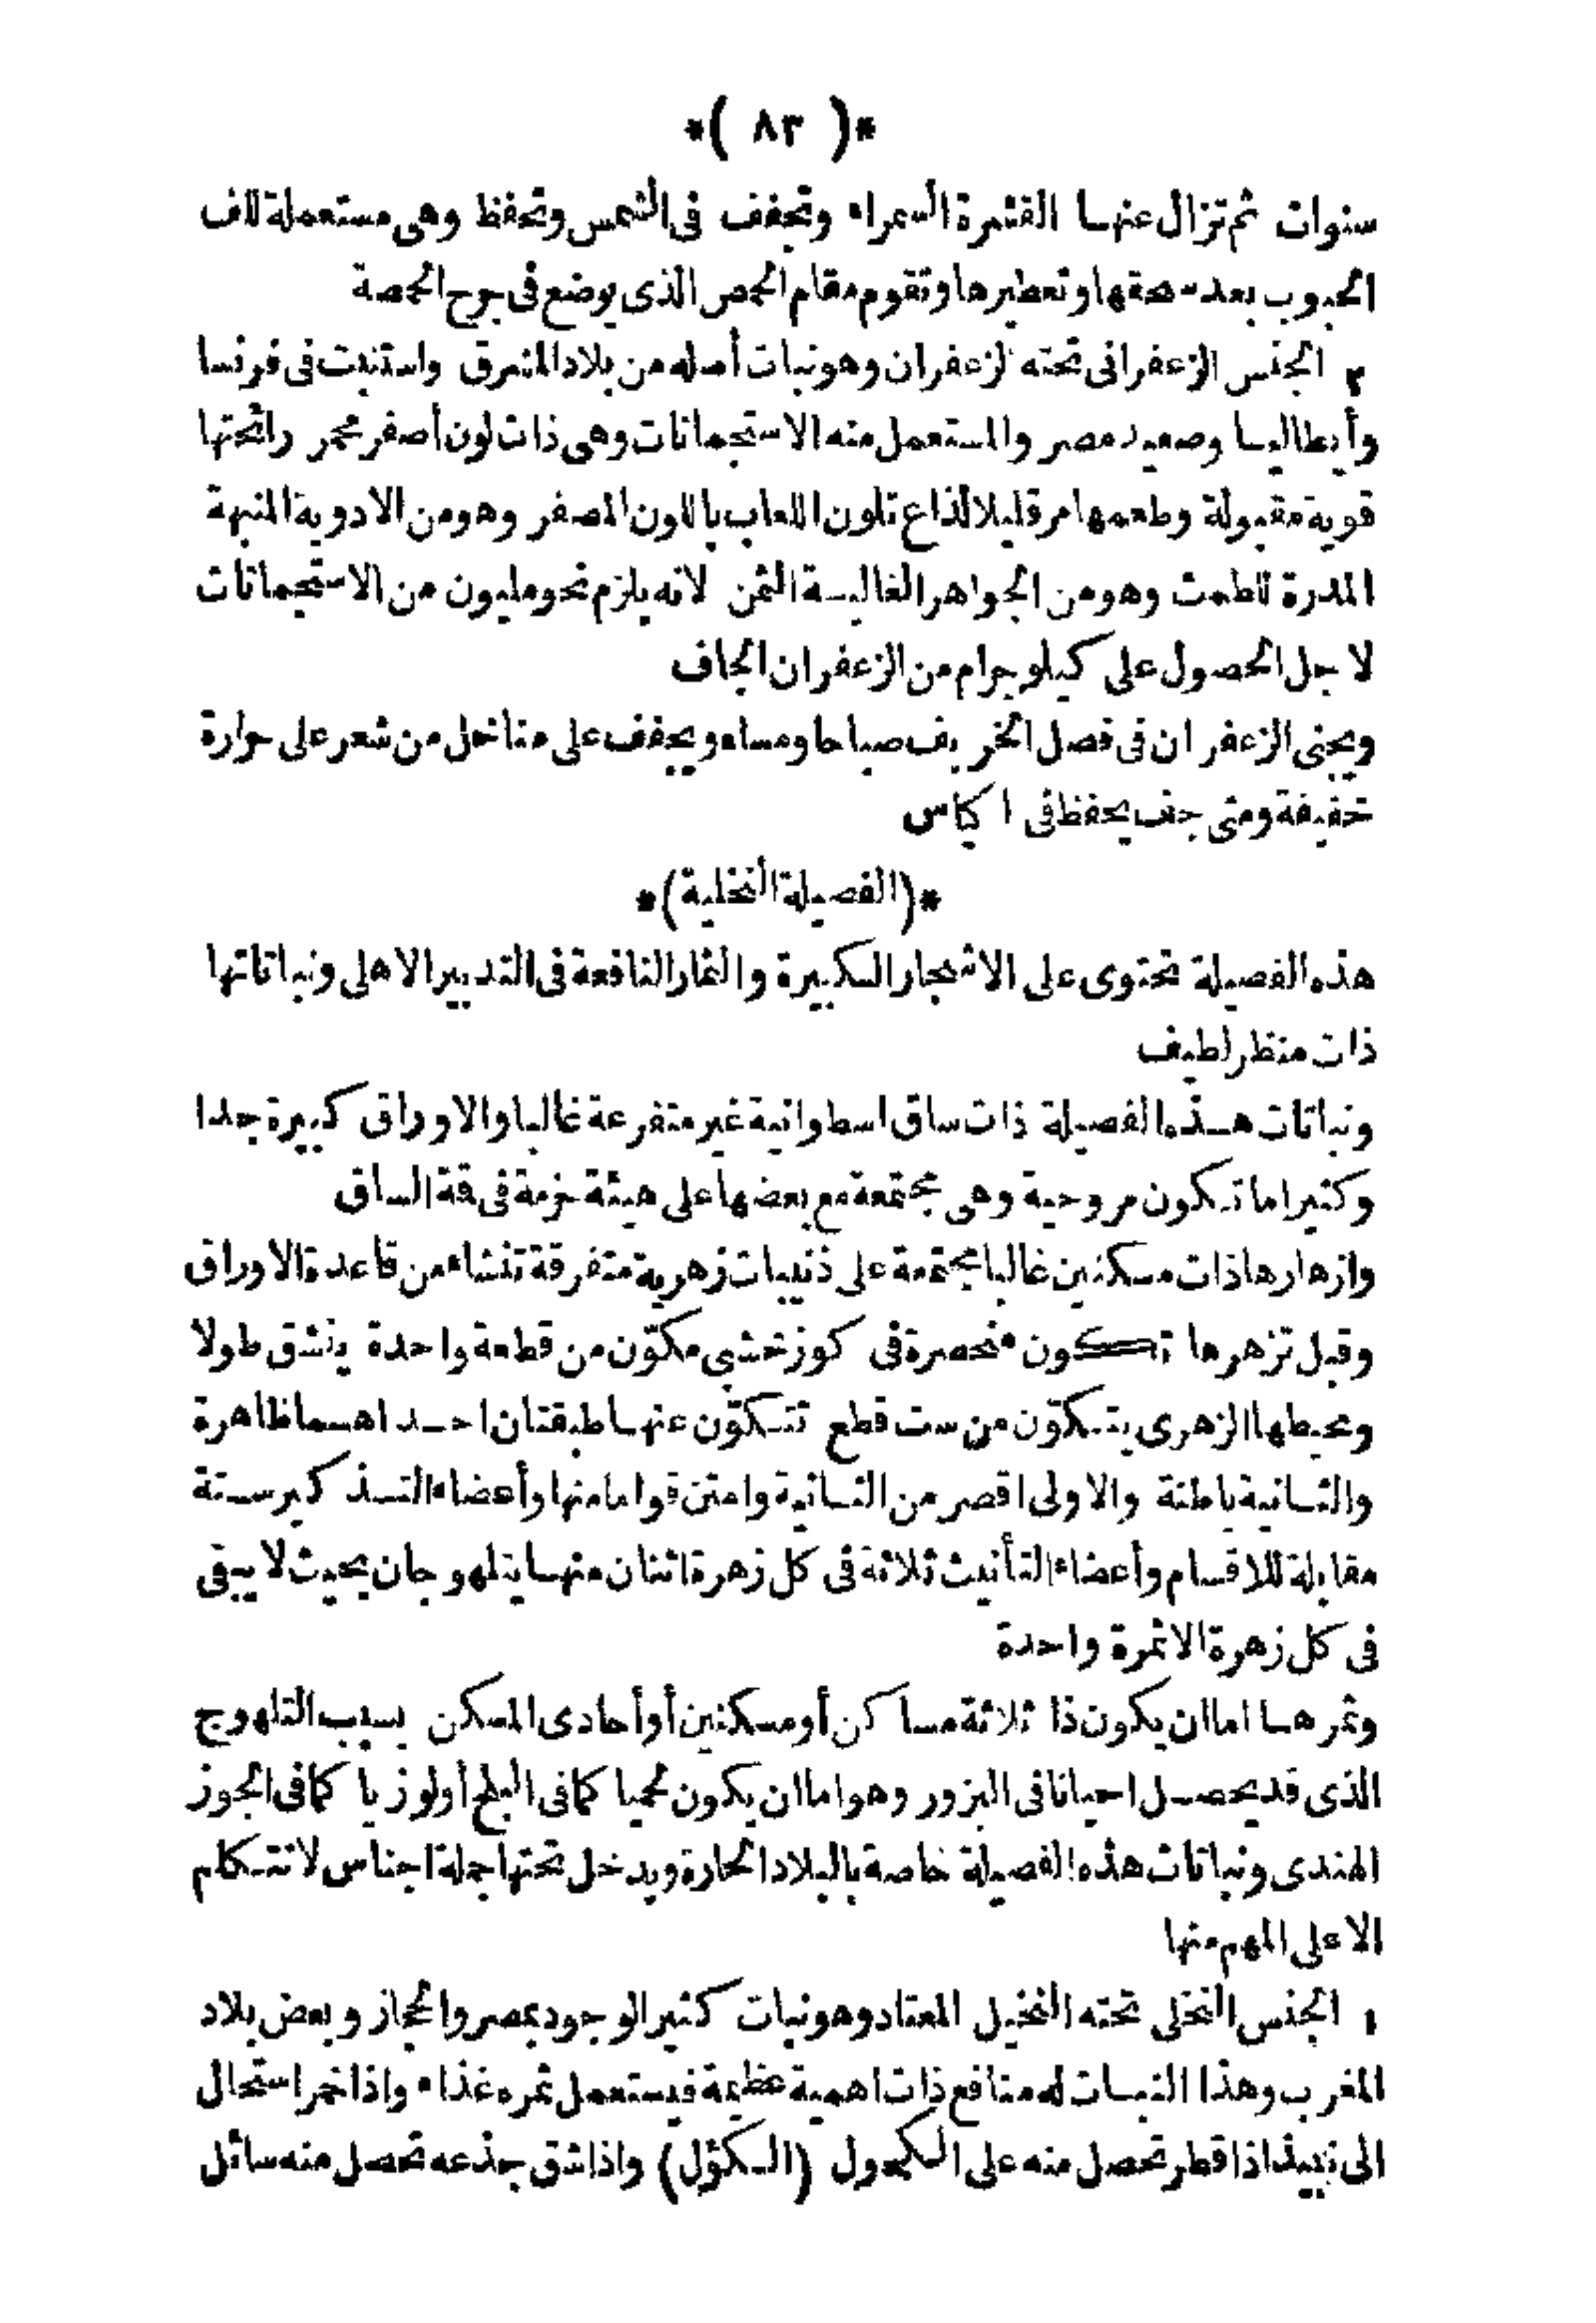 *( ٨٣ )*
سنوات ثم تزال عنها القشرة السمراء وتجفف فى الشمس وتحفظ وهى مستعملة للف
الحبوب بعد سحقها وتعطيرها وتقوم مقام الحمص الذى يوضع فى جرح الحمصة
٢ الجنس الزعفرانى تحته الزعفران وهو نبات أصله من بلاد المشرق واستنبت فى فرنسا
وأيطاليا وصعيد مصر والمستعمل منه الاستجماتات وهى ذات لون أصفر محمر رائحتها
قوية مقبولة وطعمها مر قليلا لذاع تلون اللعاب باللون المصفر وهو من الادوية المنبهة
المدرة للطمث وهو من الجواهر الغالية الثمن لانه يلزم نحو مليون من الاستجماتات
لاجل الحصول على كيلو جرام من الزعفران الجاف
ويجنى الزعفران فى فصل الخريف صباحا ومساء ويجفف على مناخل من شعر على حرارة
خفيفة ومتى جف يحفظ فى اكياس
*(الفصيلة النخلية)*
هذه الفصيلة تحتوى على الاشجار الكبيرة والثمار النافعة فى التدبير الاهلى ونباتاتها
ذات منظر لطيف
ونباتات هذه الفصيلة ذات ساق اسطوانية غير متفرعة غالبا والاوراق كبيرة جدا
وكثيرا ما تكون مروحية وهى مجتمعة مع بعضها على هيئة حزمة فى قمة الساق
وازهارها ذات مسكنين غالبا مجتمعة على ذنيبات زهرية متفرقة تنشاء من قاعدة الاوراق
وقبل تزهرها تكون منحصرة فى كوز خشبى مكوّن من قطعة واحدة ينشق طولا
ومحيطها الزهرى يتكوّن من ست قطع تتكوّن عنها طبقتان احداهما ظاهرة
والثانية باطنة والاولى اقصر من الثانية وامتن قواما منها وأعضاء التذكير ستة
مقابلة للاقسام وأعضاء التأنيث ثلاثة فى كل زهرة اثنان منها يتلهوجان بحيث لا يبقى
فى كل زهرة الا ثمرة واحدة
وثمرها اما ان يكون ذا ثلاثة مساكن أو مسكنين أو أحادى المسكن بسبب التلهوج
الذى قد يحصل احيانا فى البزور وهو اما ان يكون لحميا كما فى البلح أو لوزيا كما فى الجوز
الهندى ونباتات هذه الفصيلة خاصة بالبلاد الحارة ويدخل تحتها جملة اجناس لا تتكلم
الا على المهم منها
١ الجنس النخلى تحته النخيل المعتاد وهو نبات كثير الوجود بمصر والحجاز وبعض بلاد
المغرب وهذا النبات له منافع ذات اهمية عظيمة فيستعمل ثمره غذاء واذا تخمر استحال
الى نبيذ اذا قطر تحصل منه على الكحول (الكؤل) واذا شق جذعه تحصل منه سائل